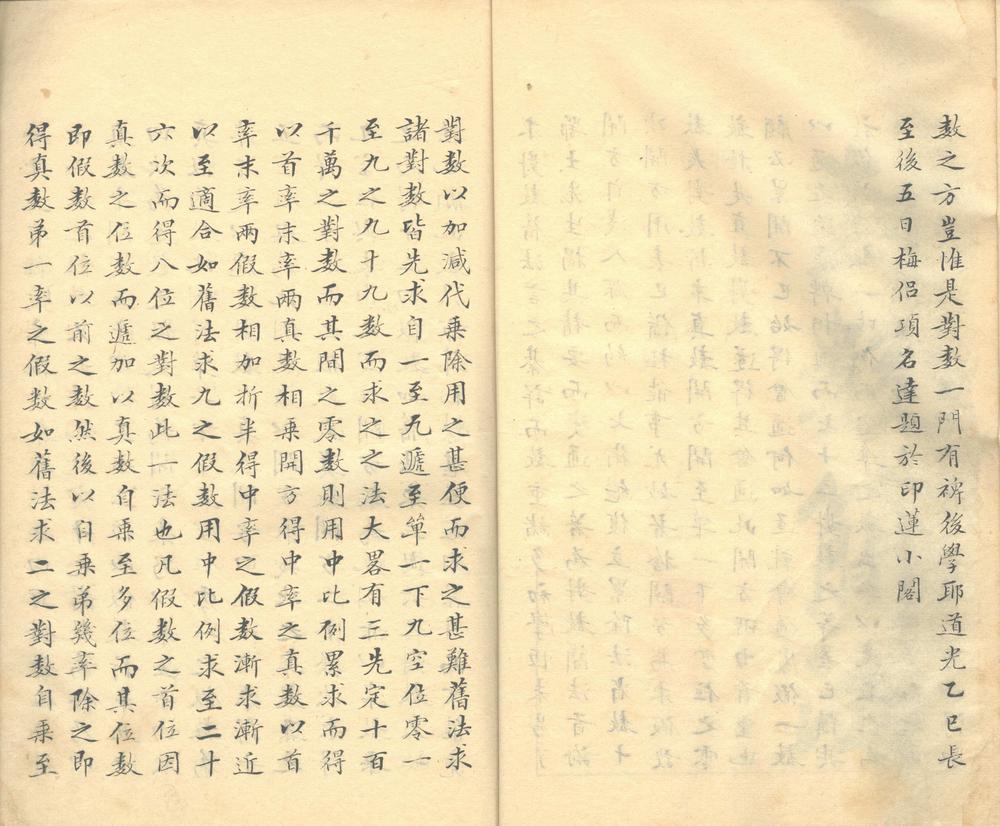 數之方豈惟是對數一門有裨後學耶道光乙巳長
至後五日梅侶項名達題於印蓮小閣
對數以加減代乘除用之甚便而求之甚難舊法求
諸對數皆先求自一至九遞至單一下九空位零一
至九之九十九數而求之之法大畧有三先定十百
千萬之對數而其間之零數則用中比例累求而得
以首率末率兩真數相乘開方得中率之真數以首
率末率兩假數相加折半得中率之假數漸求漸近
以至適合如舊法求九之假數用中比例求至二十
六次而得八位之對數此一法也凡假數之首位因
真數之位數而遞加以真數自乘至多位而其位數
即假數首位以前之數然後以自乘弟幾率除之即
得真數弟一率之假數如舊法求二之對數自乘至